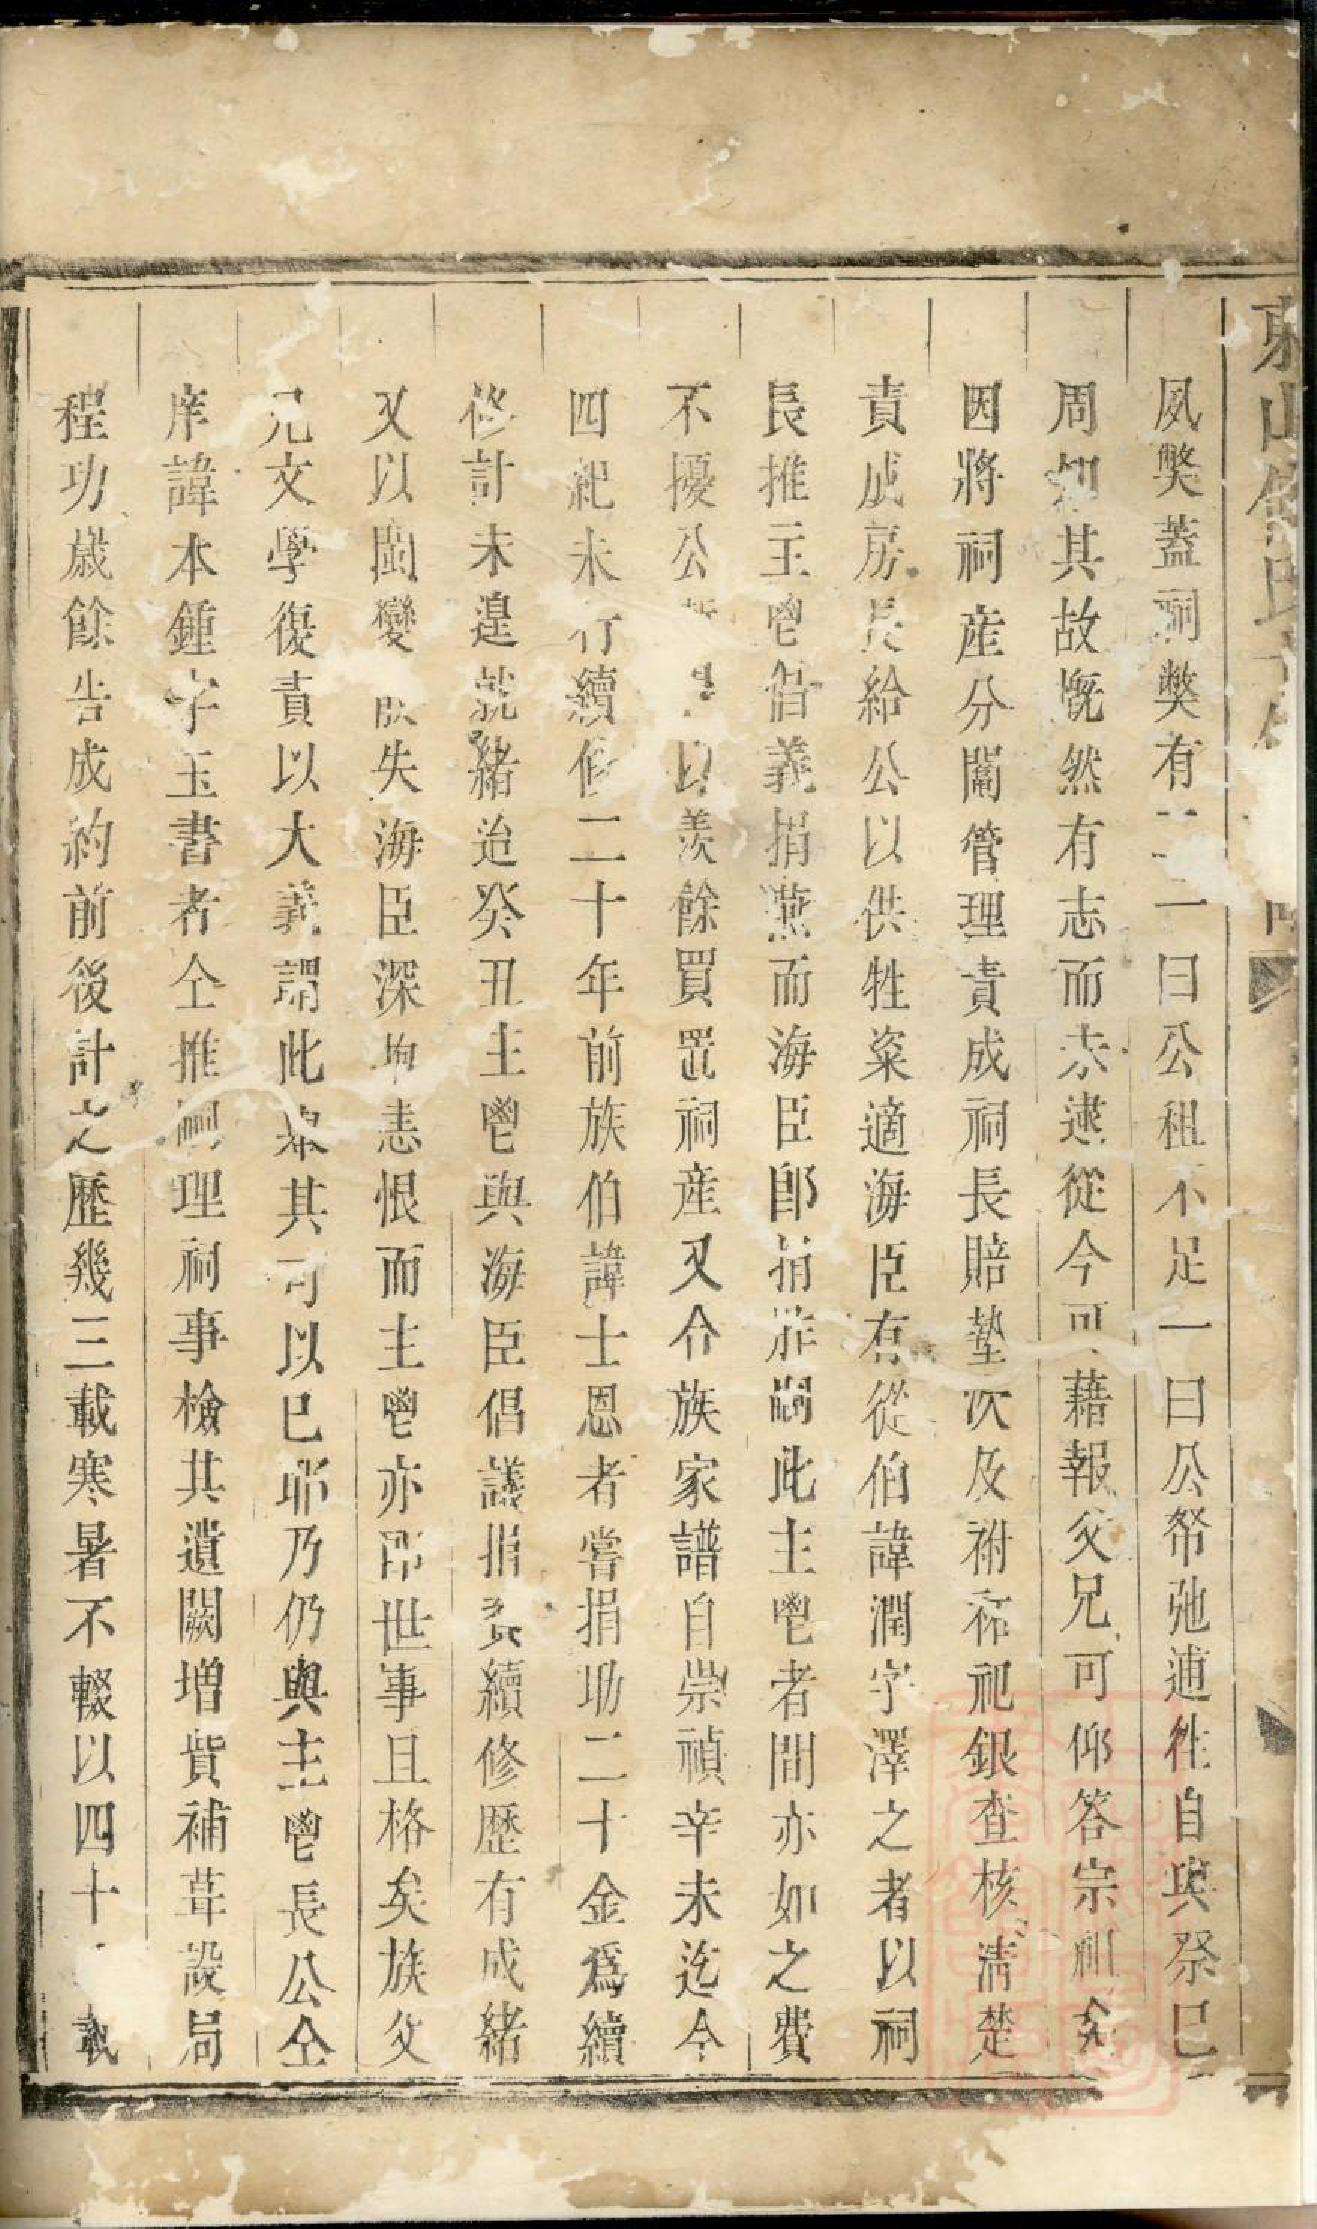 夙弊蓋祠弊有二一曰公租不足一曰公帑弛逋徃自與祭巳
周知其故慨然有志而未逮從今可藉報父兄可仰答宗祖
因將祠産分鬮管理責成祠長賠墊次及祔祏祀銀查核淸楚
責成房長給公以供牲粢適海臣有從伯諱潤字澤之者以祠
長推主鬯倡義捐燕而海臣卽捐胙嗣此主鬯者間亦如之費
不擾公以羨餘買置祠産又合族家譜自崇禎辛未迄今
四紀未行續修二十年前族伯諱士恩者嘗捐助二十金爲續
修計未遑就緒迨癸丑主鬯與海臣倡議捐貲續修歷有成緒
又以閩變失海臣深抱恚恨而主鬯亦卽世事且格矣族父
兄文學復責以大義謂此舉其可以巳耶乃仍與主鬯長公仝
庠諱本鍾字玉書者仝推嗣理祠事檢其遺闕増貲補葺設局
程功嵗餘告成約前後計之歷幾三載寒暑不輟以四十載